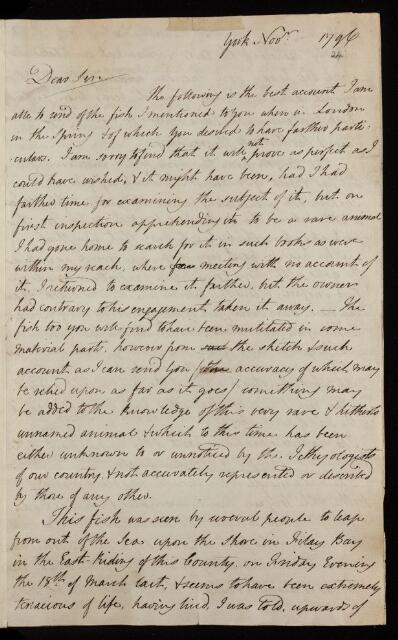 York Novr. 1796
24
Dear Sir
the following is the best account I am
able to send of the fish I mentioned to you when in London
in the Spring & of which you desired to have farther parti-
culars. I am sorry to find that it will not prove as perfect as I
could have wished, & it might have been, had I had
farther time for examining the subject of it, but on
first inspection apprehending it to be a rare animal
I had gone home to search for it in such books as were
within my reach, where meeting with no account of
it, I returned to examine it farther, but the owner
had contrary to his engagement taken it away. — The
fish too you will find to have been mutilated in some
material parts, however from the sketch & such
account as I can send you (the accuracy of which may
be relied upon as far as it goes) something may
be added to the knowledge of this very rare & hitherto
unnamed animal & which to this time has been
either unknown to or unnoticed by the Icthyologists
of our country, & not accurately represented or described
by those of any other.
This fish was seen by several people to leap
from out of the Sea upon the Shore in Filay Bay
in the East-Riding of this County, on Friday Evening
the 18th of March last, & seems to have been extremely
tenacious of life, having lived, I was told, upwards of